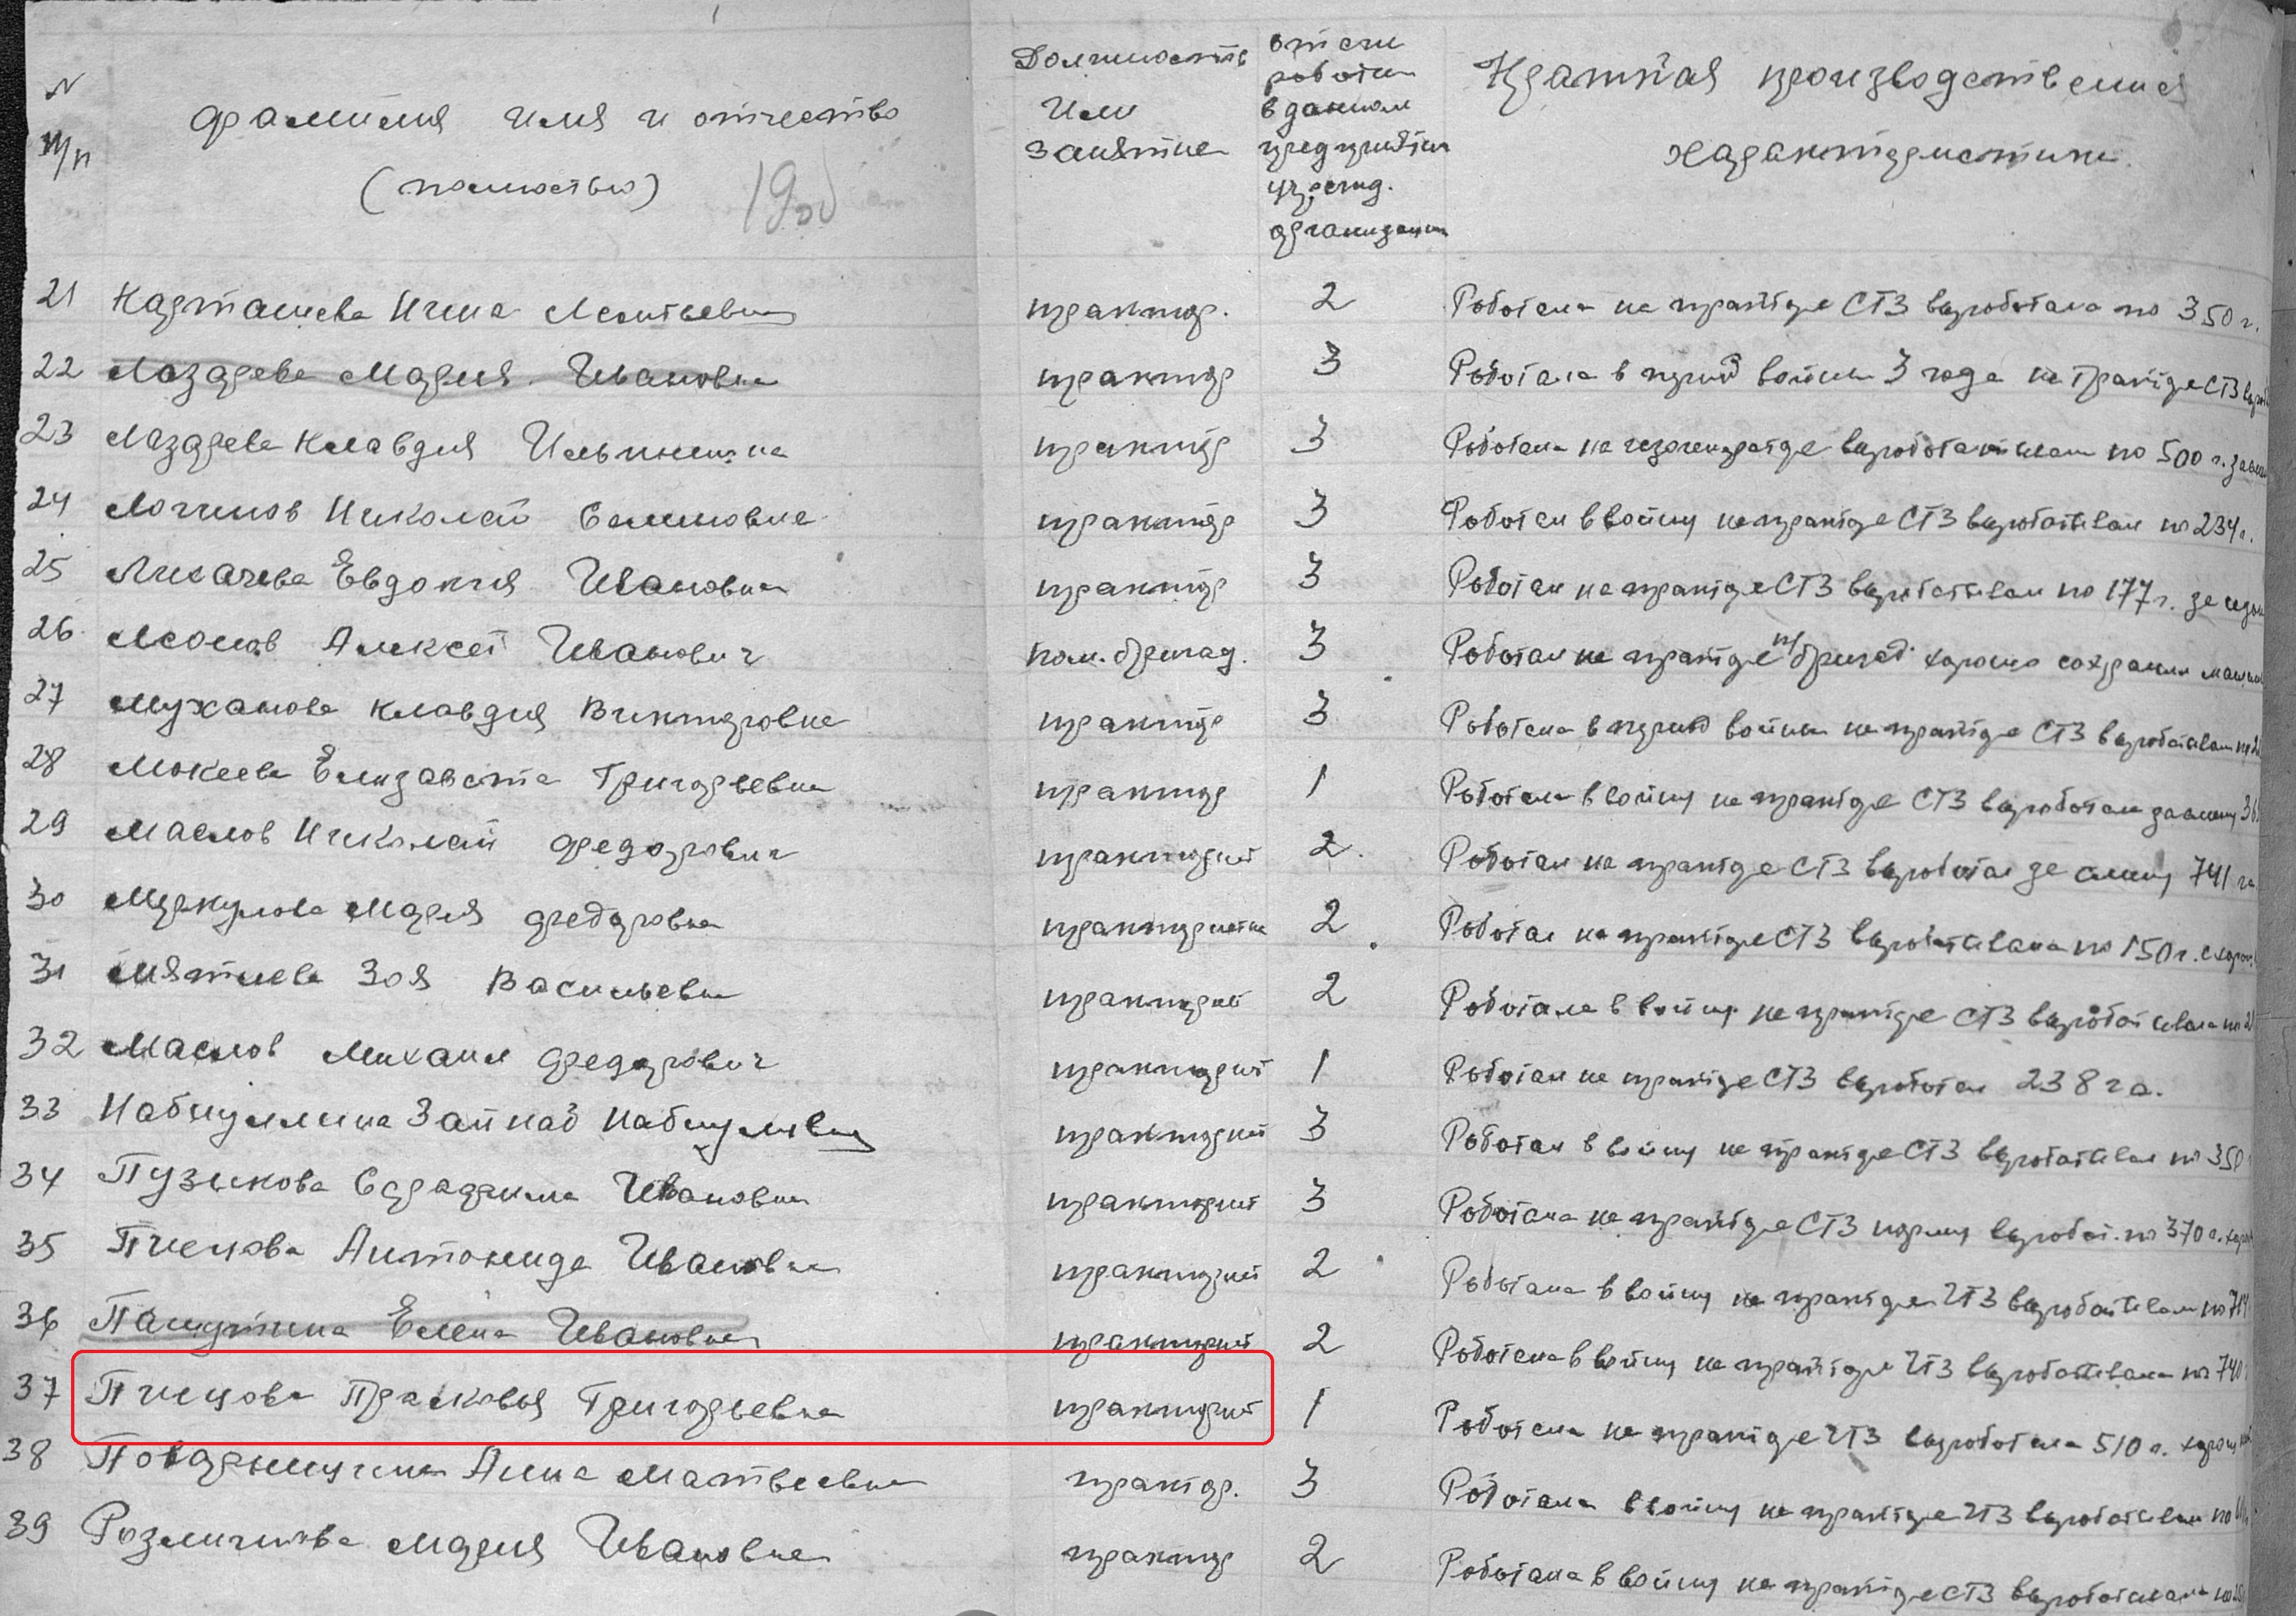 N Фамилия имя и отчество Должность отсги
п/п (полностью) или роботы
занятие в данном Краткая производственная
предприятии характеристика.
учрежд.
организации
21 Карташева Нина Леонтьевна трактор. 2 Роботала на тракторе СТЗ выроботала по 350 г.
22 Лазарева Мария Ивановна трактор 3 Роботала в период войны 3 года на тракторе СТЗ
23 Лазарева Клавдия Ильинична трактор 3 Роботала на газогенераторе выроботывала по 500 г.
24 Логинов Николай трактор 3 Роботал в войну на тракторе СТЗ выроботывал по 234 г.
25 Лихачева Евдокия Ивановна трактор 3 Роботал на тракторе СТЗ выроботывал по 177 г. за сезон
26 Леонов Алексей Иванович пом. бригад. 3 Роботал на тракторе п/бригад. хорошо сохранял
27 Муханова Клавдия Викторовна трактор 3 Роботала в период войны на тракторе СТЗ выроботывала
28 Мокеева Елизавета Григорьевна трактор 1 Роботала в войну на тракторе СТЗ выроботала
29 Маслов Николай Федорович тракторист 2 Роботал на тракторе СТЗ выроботал за смену 741 га
30 Меркулова Мария Федоровна трактористка 2 Роботал на тракторе СТЗ выроботывала по 150 г.
31 Мятлева Зоя Васильевна тракторист 2 Роботала в войну на тракторе СТЗ выроботывала
32 Маслов Михаил Федорович тракторист 1 Роботал на тракторе СТЗ выроботал 238 га.
33 Набиуллина Зайнаб тракторист 3 Роботал в войну на тракторе СТЗ выроботывал по 350
34 Пузыкова Ивановна тракторист 3 Роботала на тракторе СТЗ норму выробот. по 370 г.
35 Пченцова Антонида Ивановна тракторист 2 Роботала в войну на тракторе ЧТЗ выроботывала по
36 Пашутина Елена Ивановна тракторист 2 Роботала в войну на тракторе ЧТЗ выроботывала по 740
37 Пченцова Прасковья Григорьевна тракторист 1 Роботала на тракторе ЧТЗ выроботала 510 г.
38 Анна Матвеевна трактор. 3 Роботала в войну на тракторе ЧТЗ выроботывала по
39 Мария Ивановна трактор 2 Роботала в войну на тракторе СТЗ выроботывала по